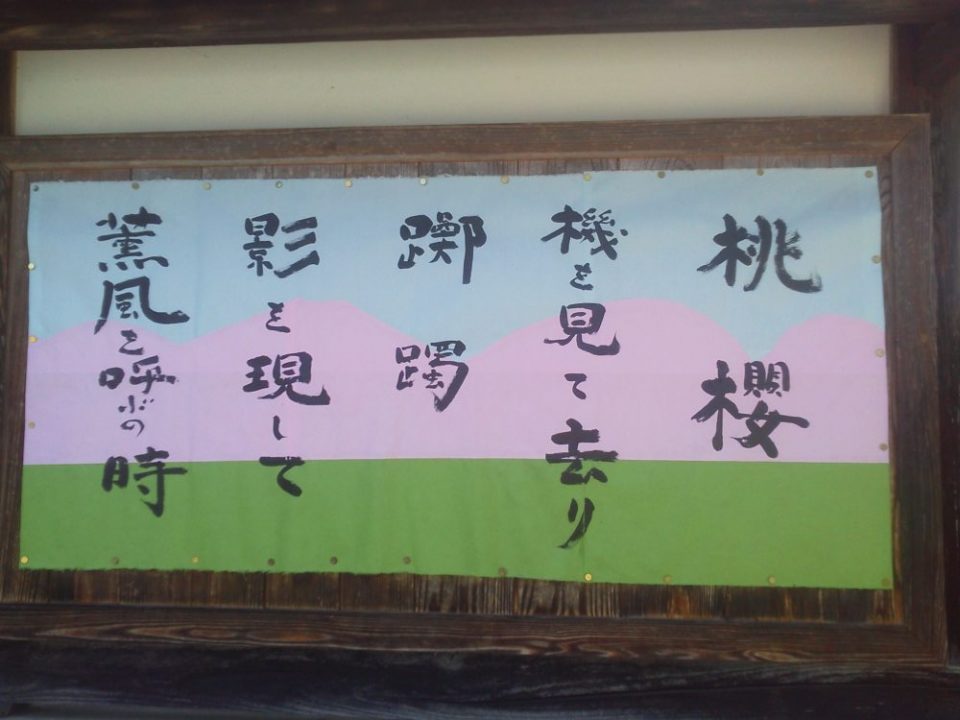 桃櫻
機を見て去り
躑躅
影を現して
薫風を呼ぶの時